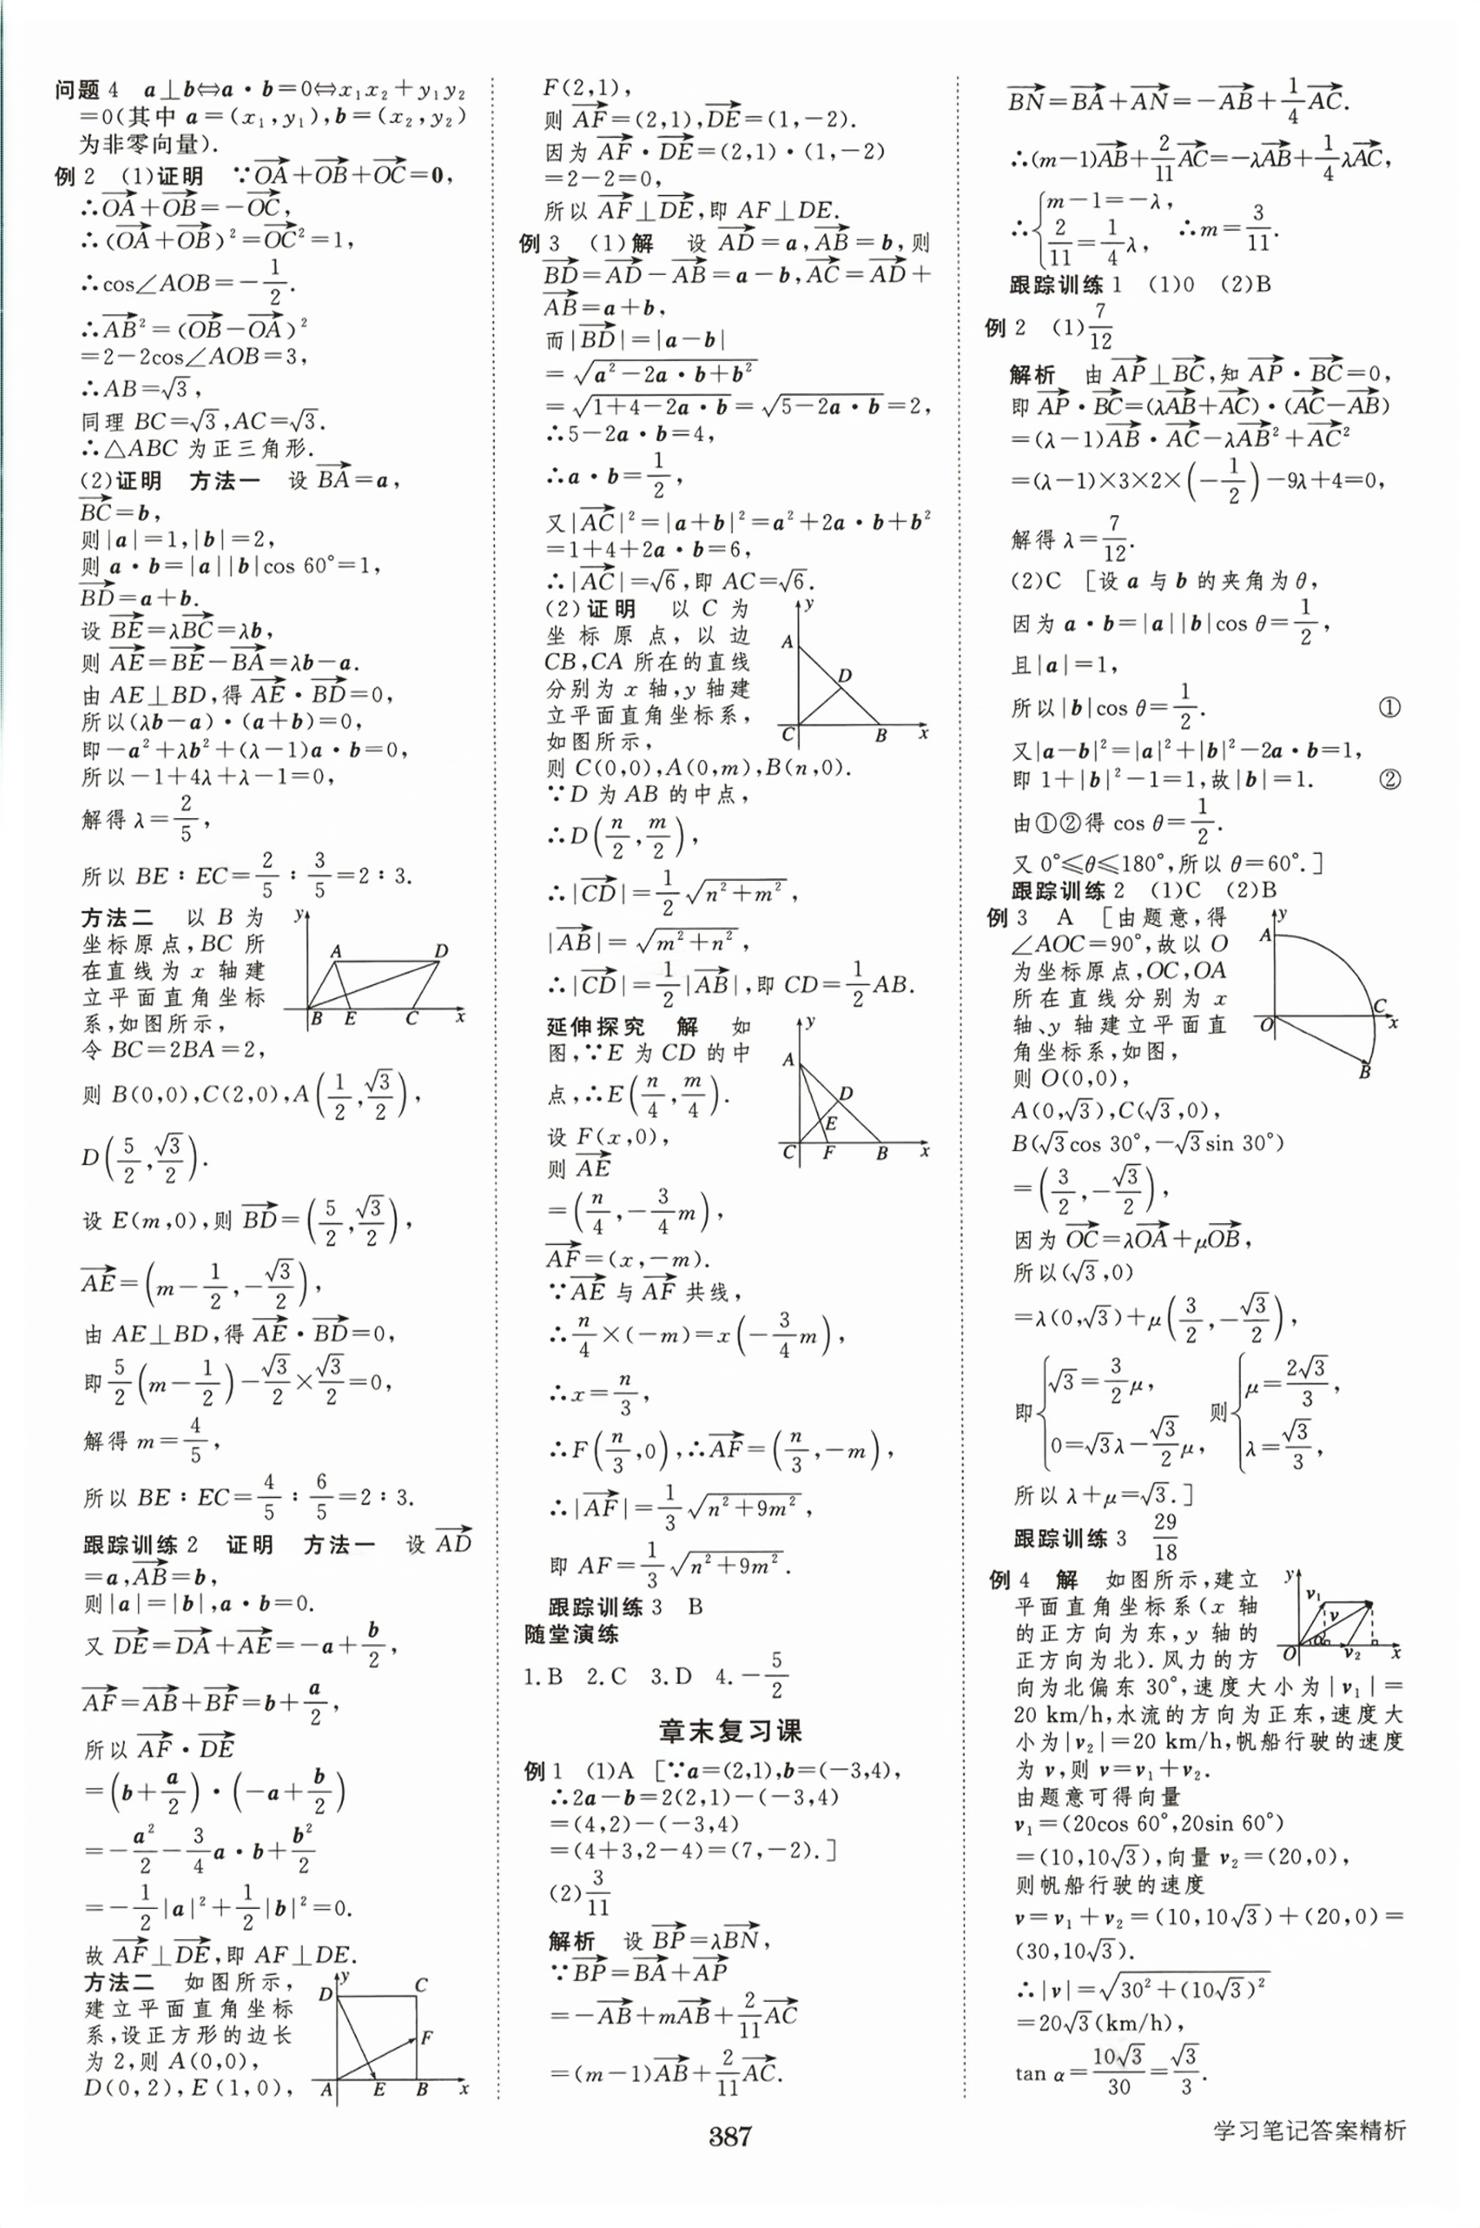 问题 4 a⊥b⇔a·b=0⇔x₁x₂+y₁y₂
=0(其中 a=(x₁,y₁),b=(x₂,y₂)
为非零向量).
例 2 (1)证明 ∵$\overrightarrow{OA}+\overrightarrow{OB}+\overrightarrow{OC}=\mathbf{0}$,
∴$\overrightarrow{OA}+\overrightarrow{OB}=-\overrightarrow{OC}$,
∴$(\overrightarrow{OA}+\overrightarrow{OB})^2=\overrightarrow{OC}^2=1$,
∴$\cos∠AOB=-\frac{1}{2}$.
∴$\overrightarrow{AB}^2=(\overrightarrow{OB}-\overrightarrow{OA})^2$
=2-2cos∠AOB=3,
∴AB=√3,
同理 BC=√3,AC=√3.
∴△ABC 为正三角形.
(2)证明 方法一 设 $\overrightarrow{BA}=a$,
$\overrightarrow{BC}=b$,
则|a|=1,|b|=2,
则 a·b=|a||b|cos 60°=1,
$\overrightarrow{BD}=a+b$.
设 $\overrightarrow{BE}=λ\overrightarrow{BC}=λb$,
则 $\overrightarrow{AE}=\overrightarrow{BE}-\overrightarrow{BA}=λb-a$.
由 AE⊥BD,得 $\overrightarrow{AE}·\overrightarrow{BD}=0$,
所以(λb-a)·(a+b)=0,
即-a²+λb²+(λ-1)a·b=0,
所以-1+4λ+λ-1=0,
解得 $λ=\frac{2}{5}$,
所以 BE∶EC=$\frac{2}{5}$∶$\frac{3}{5}$=2∶3.
方法二 以 B 为
坐标原点,BC 所
在直线为 x 轴建
立平面直角坐标
系,如图所示,
y A D B E C x
令 BC=2BA=2,
则 B(0,0),C(2,0),$A\left(\frac{1}{2},\frac{\sqrt3}{2}\right)$,
$D\left(\frac{5}{2},\frac{\sqrt3}{2}\right)$.
设 E(m,0),则 $\overrightarrow{BD}=\left(\frac{5}{2},\frac{\sqrt3}{2}\right)$,
$\overrightarrow{AE}=\left(m-\frac{1}{2},-\frac{\sqrt3}{2}\right)$,
由 AE⊥BD,得 $\overrightarrow{AE}·\overrightarrow{BD}=0$,
即 $\frac{5}{2}\left(m-\frac{1}{2}\right)-\frac{\sqrt3}{2}×\frac{\sqrt3}{2}=0$,
解得 $m=\frac{4}{5}$,
所以 BE∶EC=$\frac{4}{5}$∶$\frac{6}{5}$=2∶3.
跟踪训练 2 证明 方法一 设 $\overrightarrow{AD}$
=a,$\overrightarrow{AB}=b$,
则|a|=|b|,a·b=0.
又 $\overrightarrow{DE}=\overrightarrow{DA}+\overrightarrow{AE}=-a+\frac{b}{2}$,
$\overrightarrow{AF}=\overrightarrow{AB}+\overrightarrow{BF}=b+\frac{a}{2}$,
所以 $\overrightarrow{AF}·\overrightarrow{DE}$
$=\left(b+\frac{a}{2}\right)·\left(-a+\frac{b}{2}\right)$
$=-\frac{a^2}{2}-\frac{3}{4}a·b+\frac{b^2}{2}$
$=-\frac{1}{2}|a|^2+\frac{1}{2}|b|^2=0$.
故 $\overrightarrow{AF}⊥\overrightarrow{DE}$,即 AF⊥DE.
方法二 如图所示,
建立平面直角坐标
系,设正方形的边长
为 2,则 A(0,0),
D(0,2),E(1,0),
y D C F A E B x
F(2,1),
则 $\overrightarrow{AF}=(2,1),\overrightarrow{DE}=(1,-2)$.
因为 $\overrightarrow{AF}·\overrightarrow{DE}=(2,1)·(1,-2)$
=2-2=0,
所以 $\overrightarrow{AF}⊥\overrightarrow{DE}$,即 AF⊥DE.
例 3 (1)解 设 $\overrightarrow{AD}=a,\overrightarrow{AB}=b$,则
$\overrightarrow{BD}=\overrightarrow{AD}-\overrightarrow{AB}=a-b,\overrightarrow{AC}=\overrightarrow{AD}+$
$\overrightarrow{AB}=a+b$,
而 $|\overrightarrow{BD}|=|a-b|$
$=\sqrt{a^2-2a·b+b^2}$
$=\sqrt{1+4-2a·b}=\sqrt{5-2a·b}=2$,
∴5-2a·b=4,
∴$a·b=\frac{1}{2}$,
又 $|\overrightarrow{AC}|^2=|a+b|^2=a^2+2a·b+b^2$
=1+4+2a·b=6,
∴$|\overrightarrow{AC}|=\sqrt6$,即 AC=√6.
(2)证明 以 C 为
坐标原点,以边
CB,CA 所在的直线
分别为 x 轴,y 轴建
立平面直角坐标系,
如图所示,
y A D C B x
则 C(0,0),A(0,m),B(n,0).
∵D 为 AB 的中点,
∴$D\left(\frac{n}{2},\frac{m}{2}\right)$,
∴$|\overrightarrow{CD}|=\frac{1}{2}\sqrt{n^2+m^2}$,
$|\overrightarrow{AB}|=\sqrt{m^2+n^2}$,
∴$|\overrightarrow{CD}|=\frac{1}{2}|\overrightarrow{AB}|$,即 $CD=\frac{1}{2}AB$.
延伸探究 解 如
图,∵E 为 CD 的中
点,∴$E\left(\frac{n}{4},\frac{m}{4}\right)$.
设 F(x,0),
则 $\overrightarrow{AE}$
y A D E C F B x
$=\left(\frac{n}{4},-\frac{3}{4}m\right)$,
$\overrightarrow{AF}=(x,-m)$.
∵$\overrightarrow{AE}$ 与 $\overrightarrow{AF}$ 共线,
∴$\frac{n}{4}×(-m)=x\left(-\frac{3}{4}m\right)$,
∴$x=\frac{n}{3}$,
∴$F\left(\frac{n}{3},0\right)$,∴$\overrightarrow{AF}=\left(\frac{n}{3},-m\right)$,
∴$|\overrightarrow{AF}|=\frac{1}{3}\sqrt{n^2+9m^2}$,
即 $AF=\frac{1}{3}\sqrt{n^2+9m^2}$.
跟踪训练 3 B
随堂演练
1.B 2.C 3.D 4.$-\frac{5}{2}$
章末复习课
例 1 (1)A [∵a=(2,1),b=(-3,4),
∴2a-b=2(2,1)-(-3,4)
=(4,2)-(-3,4)
=(4+3,2-4)=(7,-2).]
(2)$\frac{3}{11}$
解析 设 $\overrightarrow{BP}=λ\overrightarrow{BN}$,
∵$\overrightarrow{BP}=\overrightarrow{BA}+\overrightarrow{AP}$
$=-\overrightarrow{AB}+m\overrightarrow{AB}+\frac{2}{11}\overrightarrow{AC}$
$=(m-1)\overrightarrow{AB}+\frac{2}{11}\overrightarrow{AC}$.
$\overrightarrow{BN}=\overrightarrow{BA}+\overrightarrow{AN}=-\overrightarrow{AB}+\frac{1}{4}\overrightarrow{AC}$.
∴$(m-1)\overrightarrow{AB}+\frac{2}{11}\overrightarrow{AC}=-λ\overrightarrow{AB}+\frac{1}{4}λ\overrightarrow{AC}$,
∴$\begin{cases}m-1=-λ,\\\frac{2}{11}=\frac{1}{4}λ,\end{cases}$ ∴$m=\frac{3}{11}$.
跟踪训练 1 (1)0 (2)B
例 2 (1)$\frac{7}{12}$
解析 由 $\overrightarrow{AP}⊥\overrightarrow{BC}$,知 $\overrightarrow{AP}·\overrightarrow{BC}=0$,
即 $\overrightarrow{AP}·\overrightarrow{BC}=(λ\overrightarrow{AB}+\overrightarrow{AC})·(\overrightarrow{AC}-\overrightarrow{AB})$
$=(λ-1)\overrightarrow{AB}·\overrightarrow{AC}-λ\overrightarrow{AB}^2+\overrightarrow{AC}^2$
$=(λ-1)×3×2×\left(-\frac{1}{2}\right)-9λ+4=0$,
解得 $λ=\frac{7}{12}$.
(2)C [设 a 与 b 的夹角为 θ,
因为 $a·b=|a||b|\cos θ=\frac{1}{2}$,
且|a|=1,
所以 $|b|\cos θ=\frac{1}{2}$. ①
又|a-b|²=|a|²+|b|²-2a·b=1,
即 1+|b|²-1=1,故|b|=1. ②
由①②得 $\cos θ=\frac{1}{2}$.
又 0°≤θ≤180°,所以 θ=60°.]
跟踪训练 2 (1)C (2)B
例 3 A [由题意,得
∠AOC=90°,故以 O
为坐标原点,OC,OA
所在直线分别为 x
轴、y 轴建立平面直
角坐标系,如图,
y A C O x B
则 O(0,0),
A(0,√3),C(√3,0),
B(√3cos 30°,-√3sin 30°)
$=\left(\frac{3}{2},-\frac{\sqrt3}{2}\right)$,
因为 $\overrightarrow{OC}=λ\overrightarrow{OA}+μ\overrightarrow{OB}$,
所以(√3,0)
$=λ(0,\sqrt3)+μ\left(\frac{3}{2},-\frac{\sqrt3}{2}\right)$,
即$\begin{cases}\sqrt3=\frac{3}{2}μ,\\0=\sqrt3λ-\frac{\sqrt3}{2}μ,\end{cases}$ 则$\begin{cases}μ=\frac{2\sqrt3}{3},\\λ=\frac{\sqrt3}{3},\end{cases}$
所以 λ+μ=√3.]
跟踪训练 3 $\frac{29}{18}$
例 4 解 如图所示,建立
平面直角坐标系(x 轴
的正方向为东,y 轴的
正方向为北).风力的方
y v₁ v α O v₂ x
向为北偏东 30°,速度大小为|v₁|=
20 km/h,水流的方向为正东,速度大
小为|v₂|=20 km/h,帆船行驶的速度
为 v,则 v=v₁+v₂.
由题意可得向量
v₁=(20cos 60°,20sin 60°)
=(10,10√3),向量 v₂=(20,0),
则帆船行驶的速度
v=v₁+v₂=(10,10√3)+(20,0)=
(30,10√3).
∴$|v|=\sqrt{30^2+(10\sqrt3)^2}$
=20√3(km/h),
$\tan α=\frac{10\sqrt3}{30}=\frac{\sqrt3}{3}$.
387
学习笔记答案精析